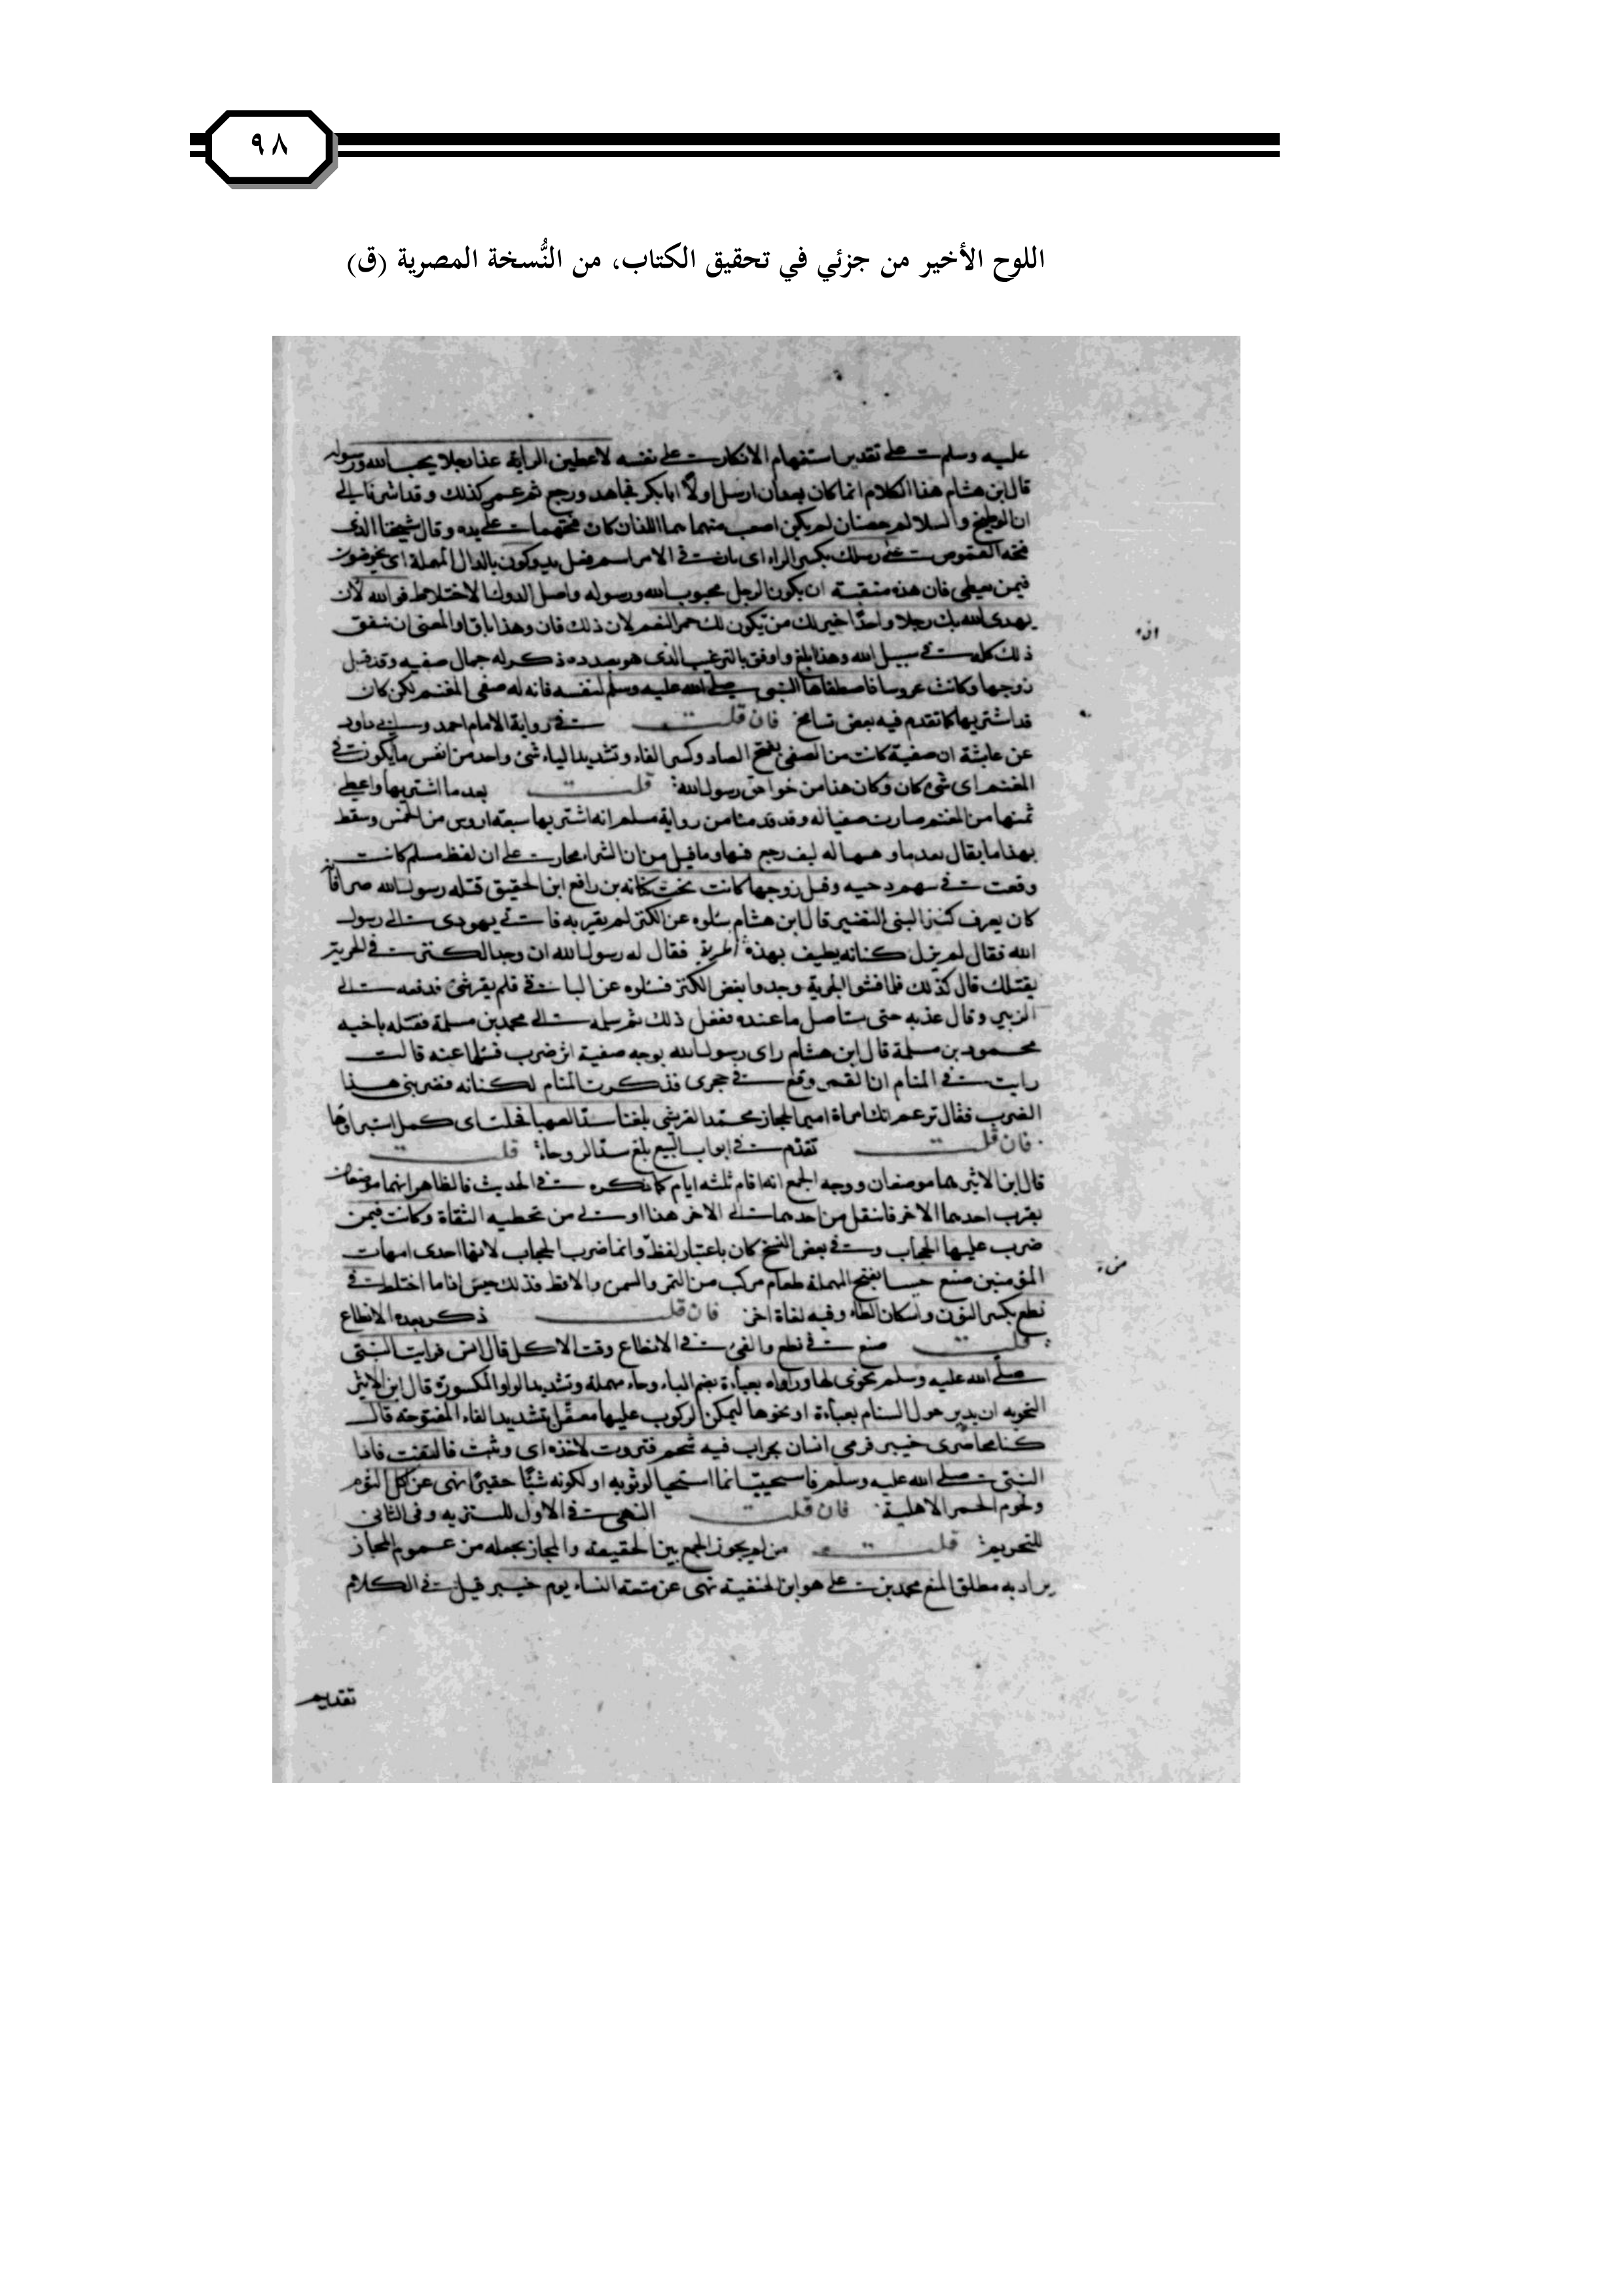 ٩٨
اللوح الأخير من جزئي في تحقيق الكتاب، من النُّسخة المصرية (ق)
عليه وسلم على تقدير استفهام الانكار على نفسه لاعطين الراية غدا رجلا يحب الله ورسوله
قال ابن هشام هذا الكلام انما كان بعد ان ارسل اولا ابا بكر فجاهد ورجع ثم عمر كذلك وقد اشرنا الى
ان الوطيح والسلالم حصنان لم يكن اصعب منهما هما اللذان كان فتحهما على يده وقال شيخنا الذى
فتحه القموص على رسلك بكسر الراء اى تان فى الامر يدوكون بالدال المهملة اى يخوضون
فيمن يعطى فان هذه منقبة ان يكون الرجل محبوب الله ورسوله واصل الدوك الاختلاط فوالله لان
يهدى الله بك رجلا واحدا خير لك من تكون لك حمر النعم لان ذلك فان وهذا باق او المعنى ان تنفق
ذلك كله فى سبيل الله وهذا ابلغ واوفق بالترغيب الذى هو بصدده ذكر له جمال صفيه وقد قتل
زوجها وكانت عروسا فاصطفاها النبى صلى الله عليه وسلم لنفسه فانه له صفى المغنم لكن كان
قد اشتريها كما تقدم فيه بعض تسامح فان قلت فى رواية الامام احمد وابى داود
عن عايشة ان صفية كانت من الصفى بفتح الصاد وكسر الفاء وتشديد الياء شئ واحد من انفس ما يكون فى
المغنم اى شئ كان وكان هذا من خواص رسول الله قلت بعد ما اشتريها واعطى
ثمنها من المغنم صارت صفيا له وقد قدمنا من رواية مسلم انه اشتريها سبعة اروس من الخمس وسقط
بهذا ما يقال بعد ما وهبها له كيف رجع فيها وما قيل من ان الشراء مجاز على ان لفظ مسلم كانت
وقعت فى سهم دحيه وقتل زوجها كانت تحت كنانه بن رافع ابن الحقيق قتله رسول الله صبرا فانه
كان يعرف كنز البنى النضير قال ابن هشام سئلوه عن الكنز لم يقر به فاتى يهودى الى رسول
الله فقال لم يزل كنانه يطيف بهذة الخربة فقال له رسول الله ان وجد الكنز فى الخربة
يقتلك قال كذلك فلما فتشوا الخربة وجدوا بعض الكنز فسئلوه عن الباقى فلم يقر بشئ فدفعه الى
الزبير وقال عذبه حتى يستاصل ما عنده ففعل ذلك ثم سلمه الى محمد بن مسلمة فقتله باخيه
محمود بن مسلمة قال ابن هشام راى رسول الله بوجه صفية اثر ضرب فسئلها عنه قالت
رايت فى المنام ان القمر وقع فى حجرى فذكرت المنام لكنانه فضربنى هذا
الضرب فقال تزعم انك امراة امير الحجاز محمد القرشى بلغنا سد الصهبا فحلت اى كمل استبراوها
فان قلت تقدم فى ابواب البيع بلغ سد الروحاء قلت
قال ابن الاثير هما موضعان ووجه الجمع انه اقام ثلثه ايام كما ذكره فى الحديث فالظاهر انهما موضعان
بقرب احدهما الاخر فانتقل من احدهما الى الاخر هذا اولى من تخطيه الثقاة وكانت فيمن
ضرب عليها الحجاب وفى بعض النسخ كان باعتبار لفظ وانما ضرب الحجاب لانها احدى امهات
المؤمنين صنع حيسا بفتح المهملة طعام مركب من التمر والسمن والاقط فذلك حيس اذا ما اختلط فى
نطع بكسر النون واسكان الطاء وفيه لغاة اخر فان قلت ذكر بعده الانطاع
قلت صنع فى نطع والقى فى الانطاع وقت الاكل قال انس فرايت النبى
صلى الله عليه وسلم يحوى لها وراءه بعباءة بضم الياء وحاء مهملة وتشديد الواو المكسورة قال ابن الاثير
التحويه ان يدير حول السنام بعباءة او نحوها ليمكن الركوب عليها مغفل بتشديد الفاء المفتوحة قال
كنا محاصرى خيبر فرمى انسان بجراب فيه شحم فنزوت لاخذه اى وثبت فالتفت فاذا
النبى صلى الله عليه وسلم فاستحييت انما استحيا لوثوبه او لكونه شيئا حقيرا نهى عن اكل الثوم
ولحوم الحمر الاهلية فان قلت النهى فى الاول للتنزيه وفى الثانى
للتحريم قلت من لم يجوز الجمع بين الحقيقة والمجاز يجعله من عموم المجاز
يراد به مطلق المنع محمد بن على هو ابن الحنفية نهى عن متعة النساء يوم خيبر قيل فى الكلام
تقديم